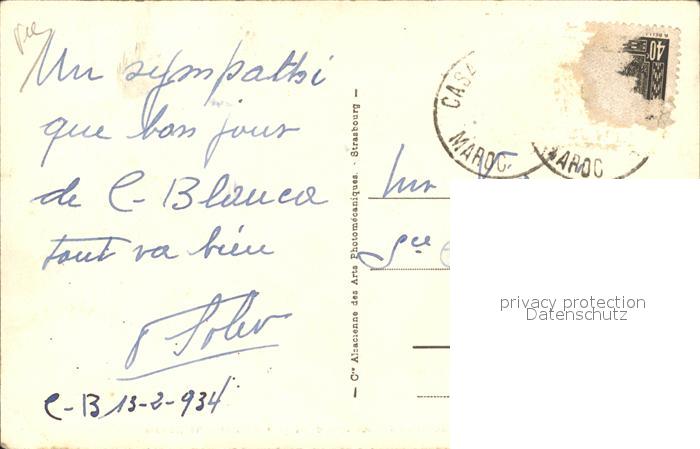 Un sympathi
que bon jour
de C-Blanca
tout va bien
C-B 13-2-934
— Cie Alsacienne des Arts Photomécaniques - Strasbourg —
CASA
MAROC
MAROC
40c
Mr
privacy protection
Datenschutz